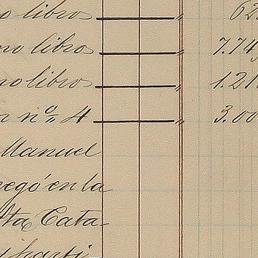 o libro " 62
no libro " 7.74
no libro " 1.21
r nos 4 " 3.00
Manuel
regó en la
Sta Cata